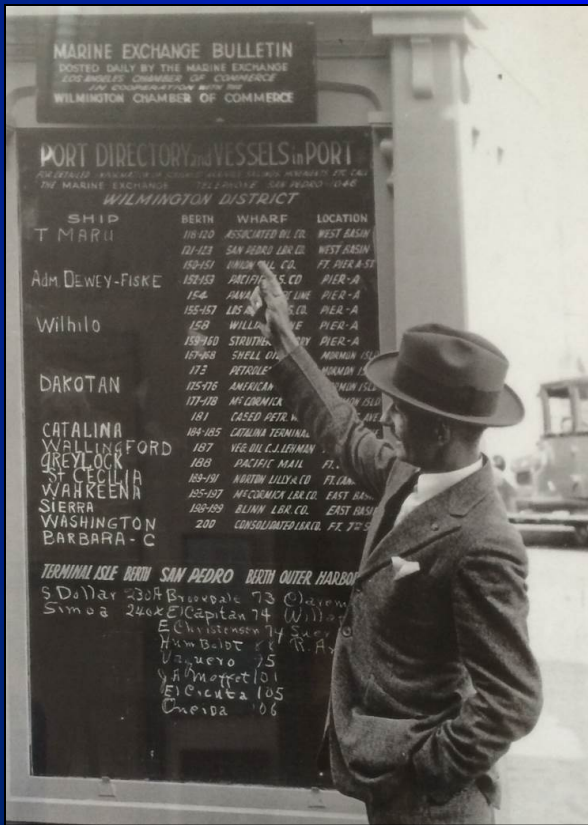 MARINE EXCHANGE BULLETIN
POSTED DAILY BY THE MARINE EXCHANGE
LOS ANGELES CHAMBER OF COMMERCE
IN COOPERATION WITH THE
WILMINGTON CHAMBER OF COMMERCE
PORT DIRECTORY and VESSELS in PORT
FOR DETAILED ETC CALL
THE MARINE EXCHANGE TELEPHONE SAN PEDRO
WILMINGTON DISTRICT
SHIP BERTH WHARF LOCATION
T MARU 118-120 ASSOCIATED OIL CO. WEST BASIN
121-123 SAN PEDRO LBR. CO. WEST BASIN
150-151 UNION OIL CO. FT. PIER A-ST
Adm. DEWEY-FISKE 152-153 PACIFIC S.CO PIER-A
154 LINE PIER-A
155-157 LOS S.CO. PIER-A
Wilhilo 158 PIER-A
159-160 PIER-A
167-168 SHELL OIL MORMON ISL
173 MORMON ISL
DAKOTAN 175-176 AMERICAN
177-178 McCORMICK
181 CASED PETR.
CATALINA 184-185 CATALINA TERMINAL
WALLINGFORD 187 VEG. OIL C.J. LEHMAN
GREYLOCK 188 PACIFIC MAIL FT.
ST CECILIA 189-191 NORTON LILLY & CO FT.
WAHKEENA 195-197 McCORMICK LBR. CO. EAST BAS
SIERRA 198-199 BLINN LBR. CO. EAST BAS
WASHINGTON 200 CONSOLIDATED LBR. CO. FT.
BARBARA-C
TERMINAL ISLE BERTH SAN PEDRO BERTH OUTER HARBOR
S Dollar 230A Brookdale 73
Simoa 240x El Capitan 74
E Christenson 74
Humboldt
Vaquero 75
J A Moffet 101
El Cicuta 105
Oneida 106